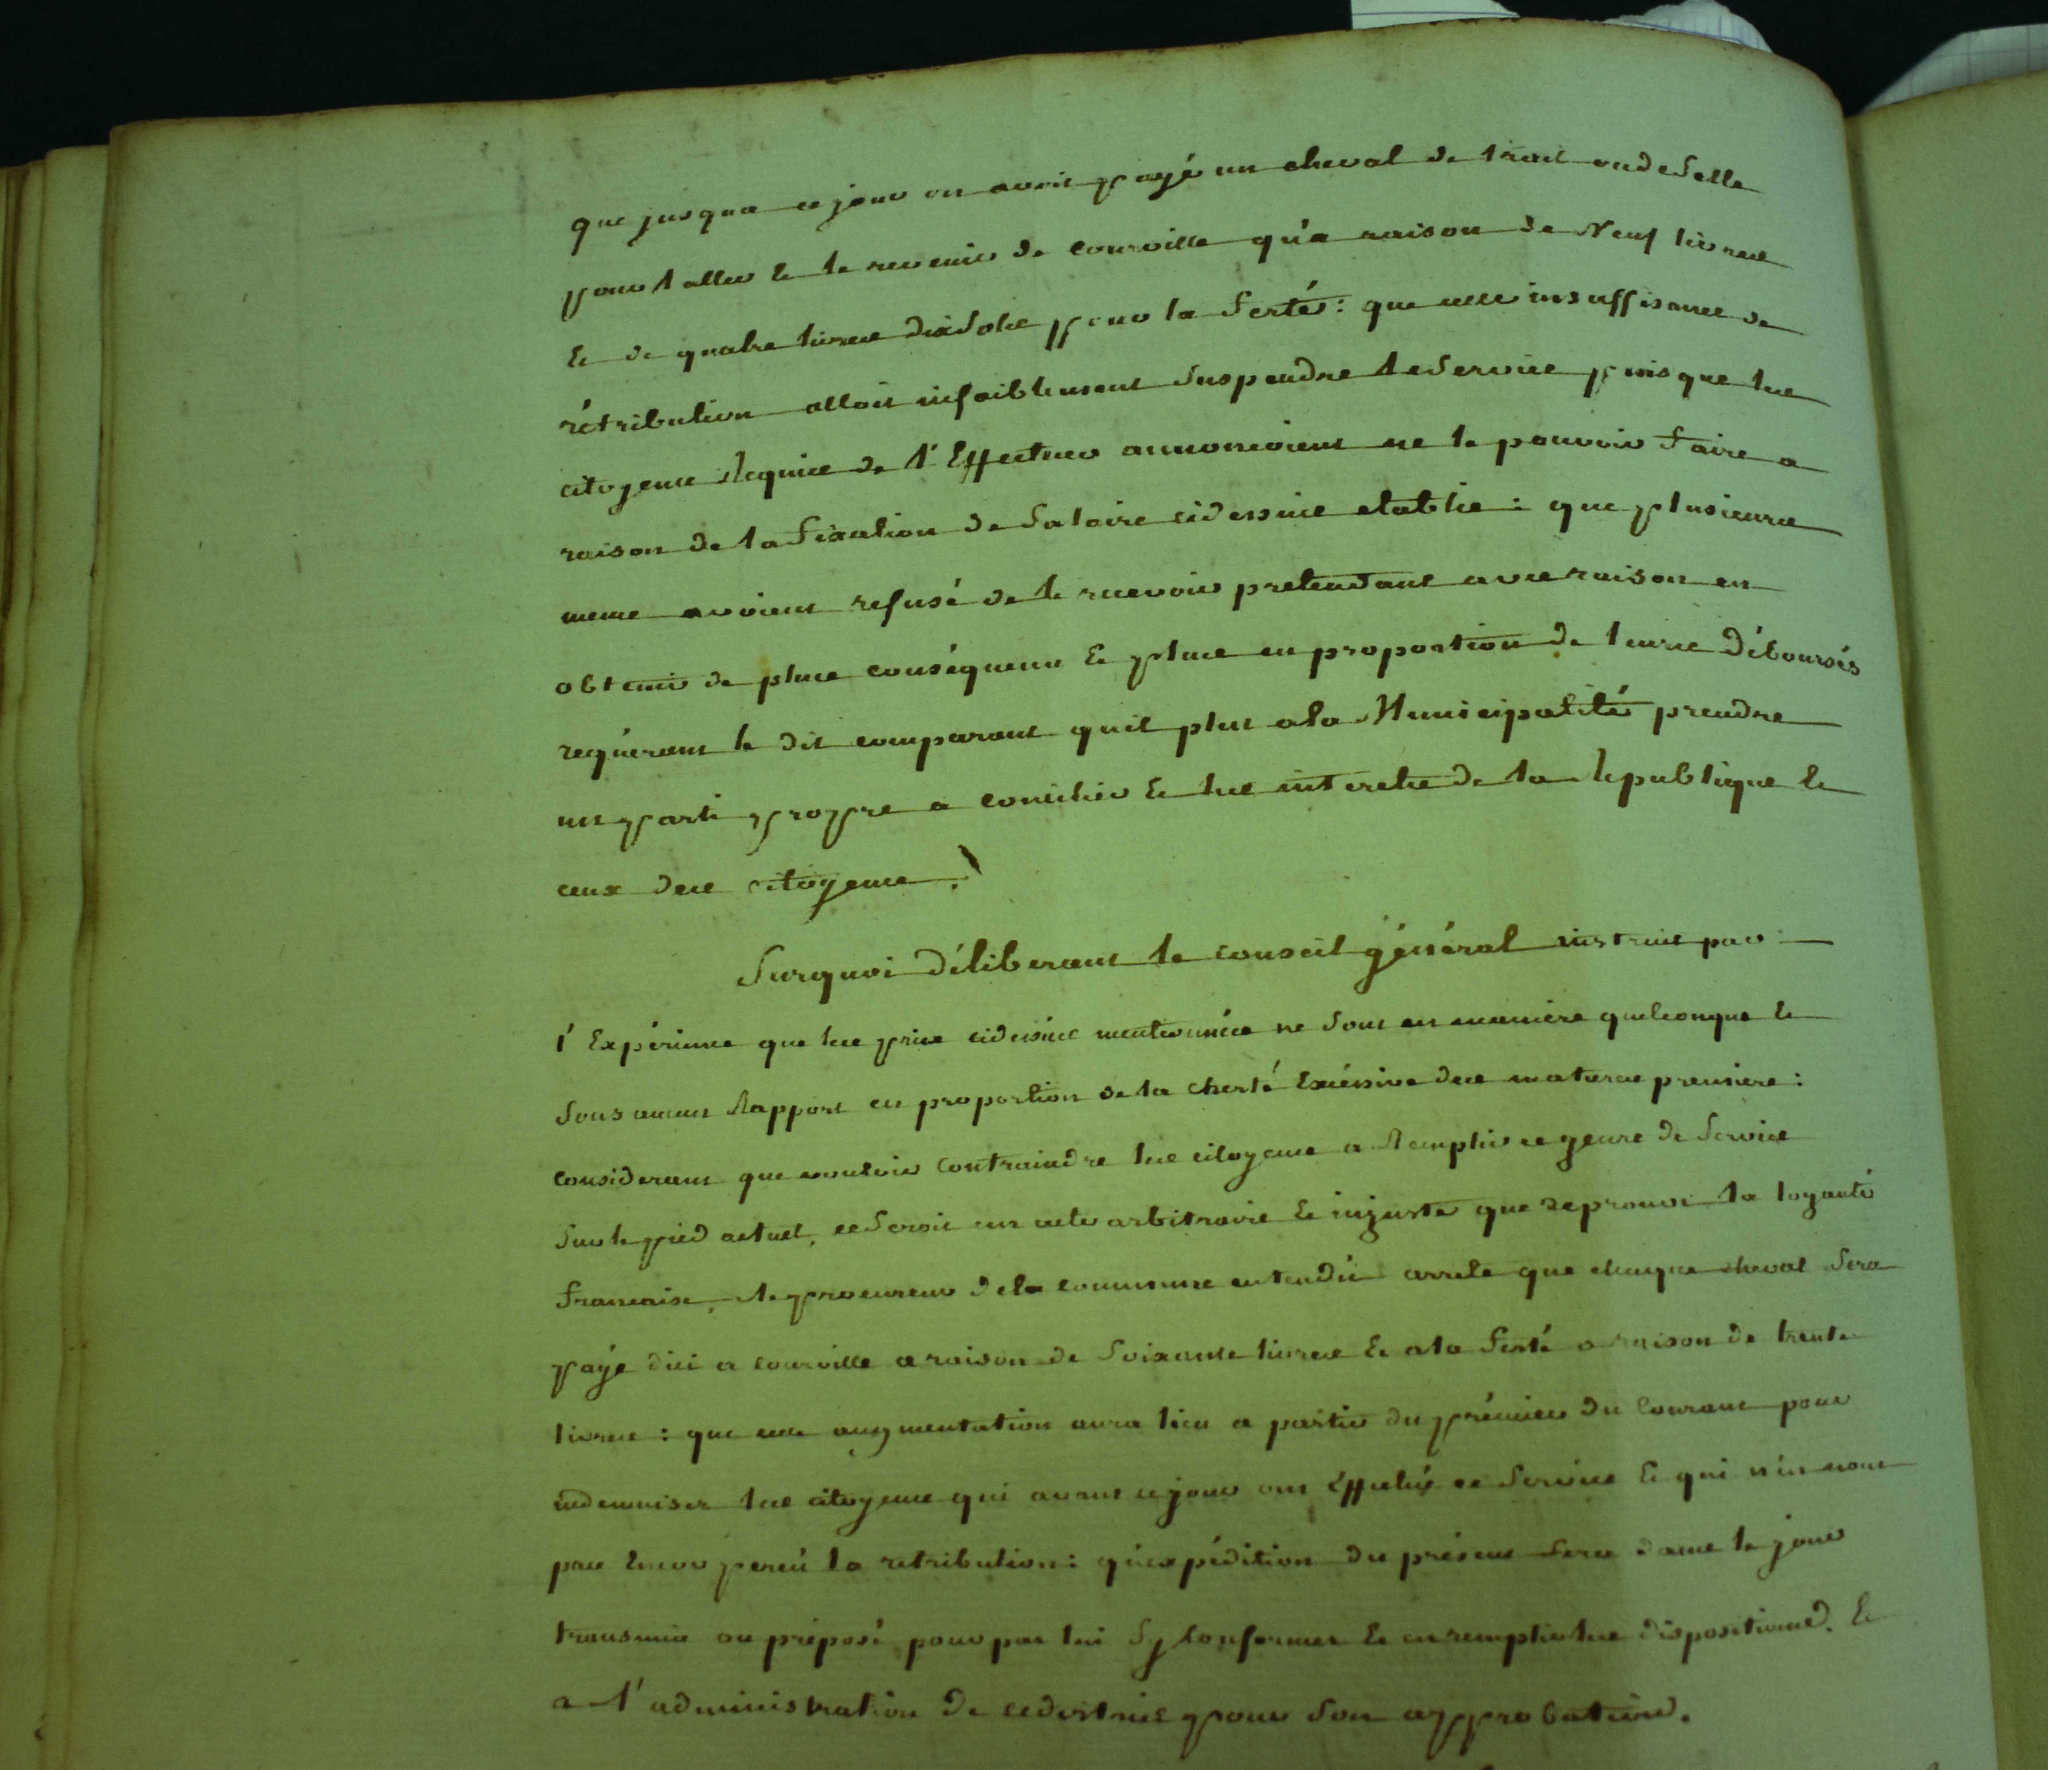 que jusqua ce jour on avoit payé un cheval de trait ou de Selle
pour laller & le revenir de courville qu'a raison de Neuf livres
& de quatre livres dix Sols pour la ferté : que cette insuffisance de
rétribution alloit infaiblement Suspendre le Service puisque les
citoyens Requis de l'Effectuer annoncoient ne le pouvoir faire a
raison de la fixation de Salaire cidessus etablie : que plusieurs
meme avoient refusé de le recevoir pretendant avec raison en
obtenir de plus conséquens & plus en proportion de leurs Déboursés
requerant le dit comparant quil plut a la Municipalité prendre
un parti propre a concilier & les interets de la Republique &
ceux des citoyens.
Surquoi déliberant le conseil général instruit par
l'Expérience que les prix cidessus mentionnés ne Sont en maniere quelconque &
Sous aucun Rapport en proportion de la cherté Excéssive des matieres premiere :
considerant que vouloir Contraindre les citoyens a Remplir ce genre de Service
Sur le pied actuel, ce Seroit un acte arbitraire & injuste que reprouve la loyauté
francaise, le procureur de la commune entendu arrete que chaque cheval Sera
payé dici a courville a raison de Soixante livres & a la ferté a raison de trente
livres : que cette augmentation aura lieu a partir du prémier du Courant pour
indemniser les citoyens qui avant ce jour ont Effectué ce Service & qui n'en n'ont
pas Encor percu la retribution : qu'expédition du présent Sera dans le jour
transmis au préposé pour par lui Sy Conformer & en remplir les dispositions. &
a l'administration de cedistrict pour Son approbation.